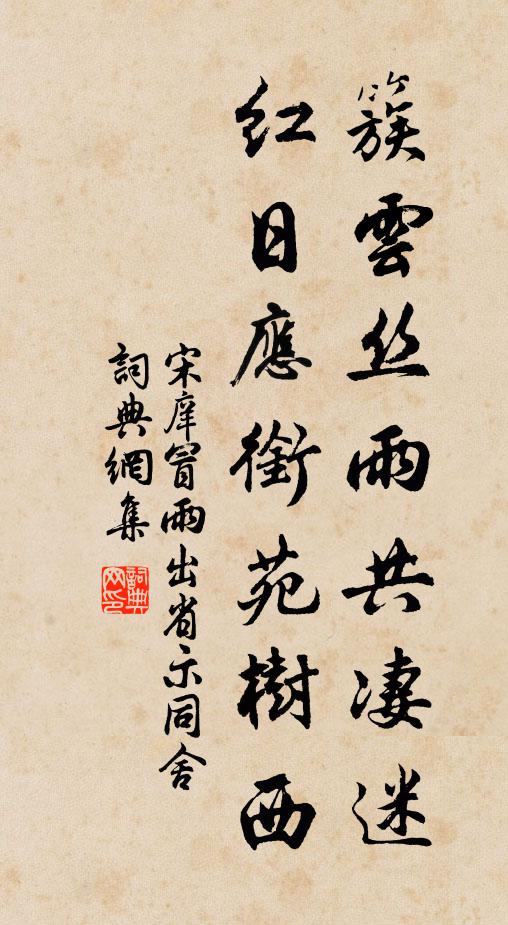 簇雲丝雨共凄迷
紅日應銜苑樹西
宋庠冒雨出省示同舍
詞典網集
詞典網印